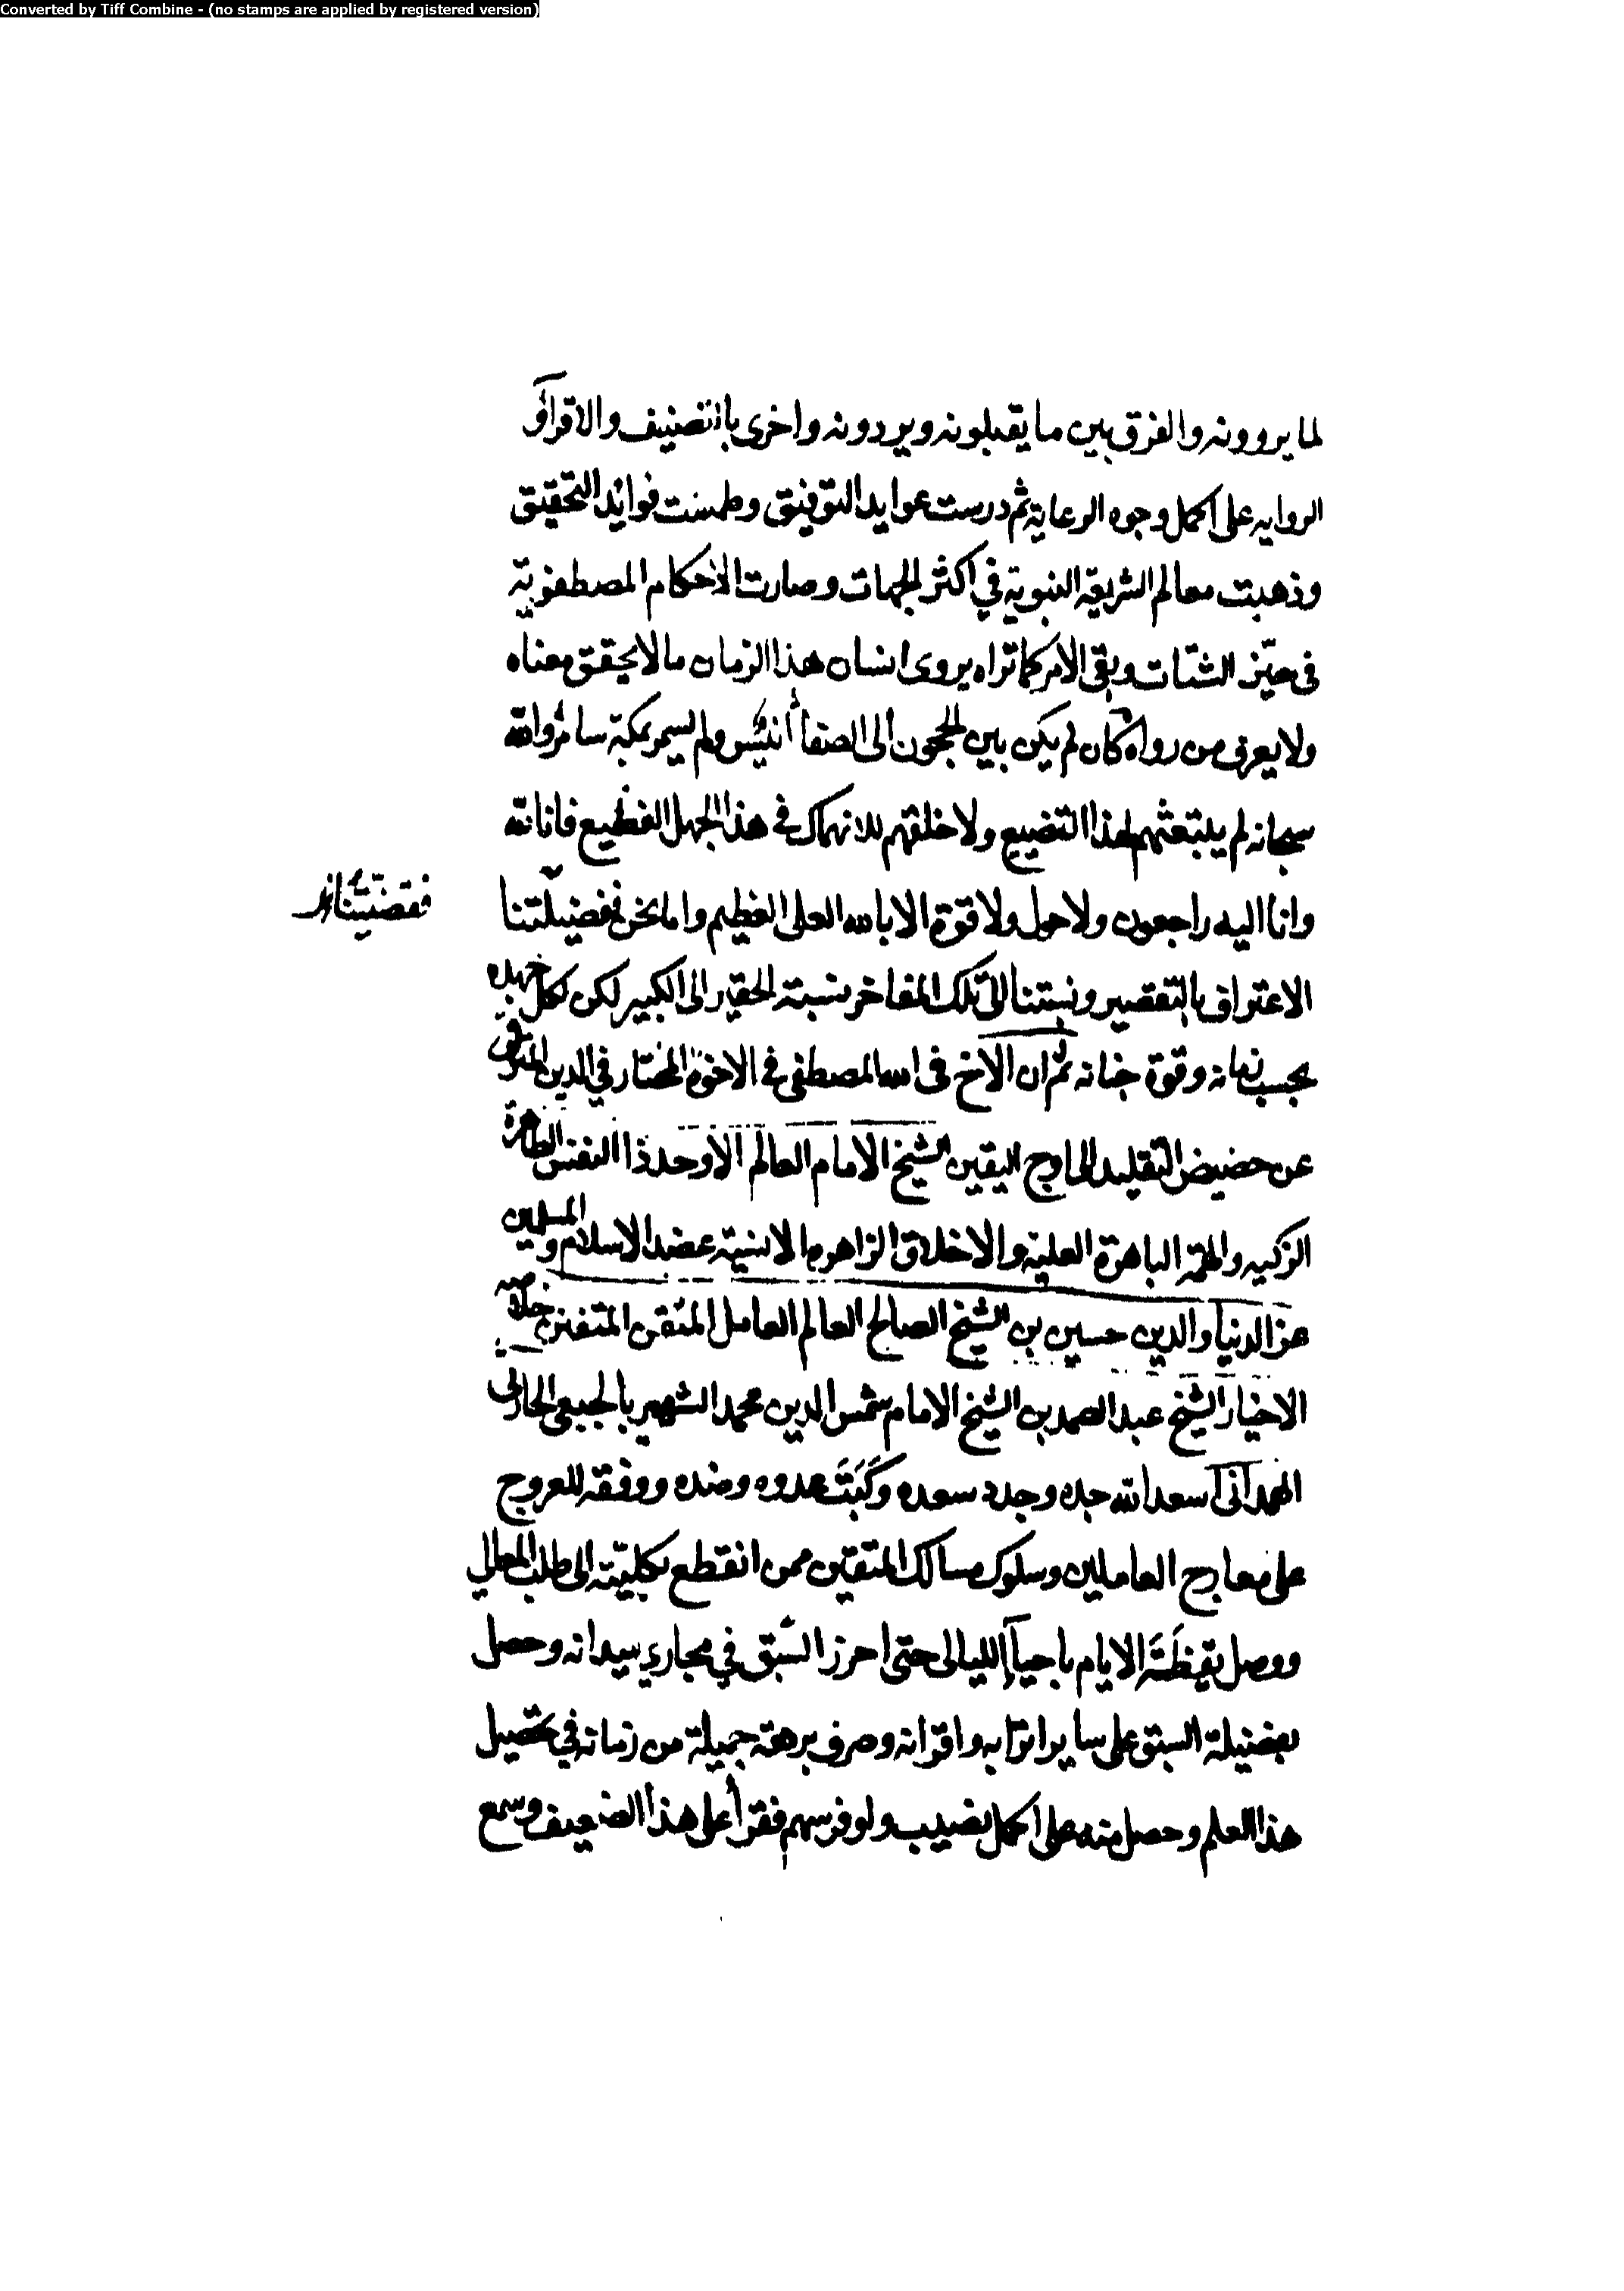 Converted by Tiff Combine - (no stamps are applied by registered version)
لما يروونه والفرق بين ما يقبلونه ويردونه واخرى بالتصنيف والاقرآء و
الروايه على اكمل وجوه الرعاية ثم درست عوايد التوفيق وطمست فوائد التحقيق
وذهبت معالم الشريعة النبوية في اكثر الجهات وصارت الاحكام المصطفوية
في حيّز الشتات وبقى الامر كما تراه يروى انسان هذا الزمان ما لا يحقق معناه
ولا يعرف من رواه كان لم يكن بين الحجون الى الصفا أنيس ولم يسمر بمكة سامر والله
سبحانه لم يبتعثهم لهذا التضييع ولا خلقهم للانهماك في هذا الجهل الفظيع فانا لله
وانا اليه راجعون ولا حول ولا قوة الا بالله العلى العظيم واما نحن ففضيلتنا
الاعتراف بالتقصير ونسبتنا الى تلك المفاخر نسبة الحقير الى الكبير لكن لكل جهده
بحسب زمانه وقوة جنانه ثم ان الاخ في الله المصطفى في الاخوة المختار في الدين المترقى
عن حضيض التقليد الى اوج اليقين الشيخ الامام العالم الاوحد ذا النفس الطاهرة
الزكيه والهمة الباهرة العلية والاخلاق الزاهرة الانسية عضد الاسلام والمسلمين
عز الدنيا والدين حسين بن الشيخ الصالح العالم العامل المتقن المتفنن خلاصة
الاخيار الشيخ عبد الصمد بن الشيخ الامام شمس الدين محمد الشهير بالجبعى الحارثى
الهمدانى اسعد الله جده وجدد سعده وكَبَتَ عدوه وضده ووفقه للعروج
على معارج العاملين وسلوك مسالك المتقين ممن انقطع بكليته الى طلب المعالي
ووصل يقظَةَ الايام باحيآء الليالى حتى احرز السّبق في مجاري ميدانه وحصل
بفضيلة السبق على ساير اترابه واقرانه وصرف برهة جميلة من زمانه في تحصيل
هذا العلم وحصل منه على اكمل نصيب واوفر سهم فقرأ على هذا الضعيف وسمع